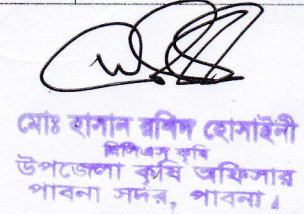 মোঃ হাসান রশিদ হোসাইনী
বিসিএস কৃষি
উপজেলা কৃষি অফিসার
পাবনা সদর, পাবনা।